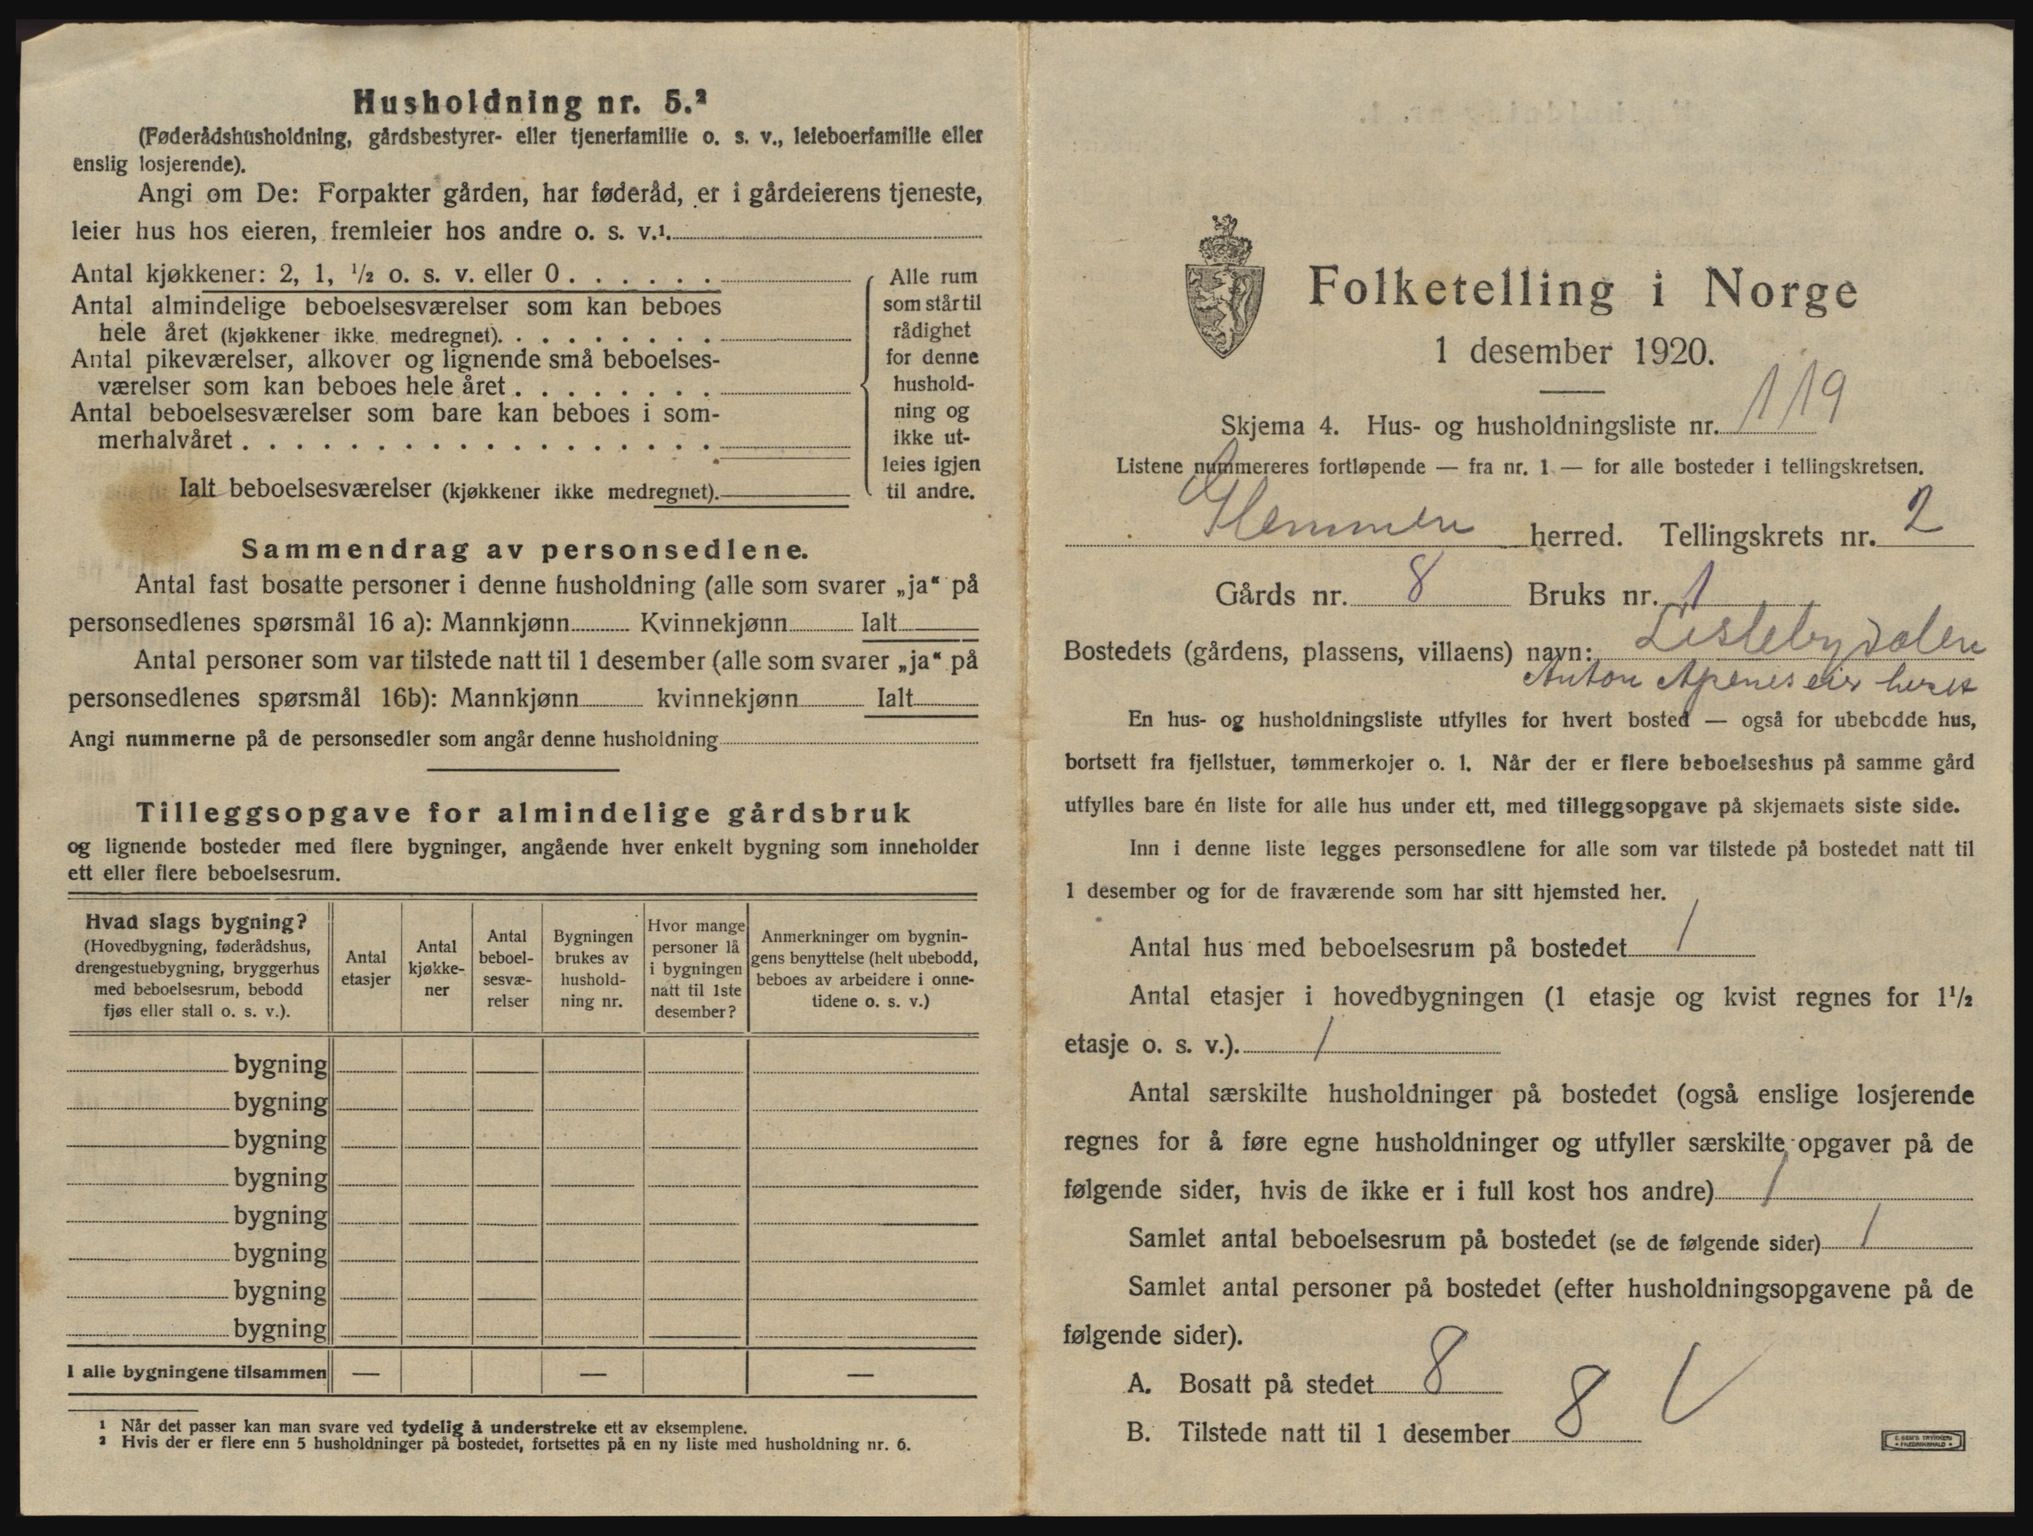 Husholdning nr. 5.²
(Føderådshusholdning, gårdsbestyrer- eller tjenerfamilie o. s. v., leieboerfamilie eller
enslig losjerende).
Angi om De: Forpakter gården, har føderåd, er i gårdeierens tjeneste,
leier hus hos eieren, fremleier hos andre o. s. v.¹.
Antal kjøkkener: 2, 1, ½ o. s. v. eller 0 . . . . . .
Antal almindelige beboelsesværelser som kan beboes
hele året (kjøkkener ikke medregnet). . . . . . . . .
Antal pikeværelser, alkover og lignende små beboelses-
værelser som kan beboes hele året . . . . . . . .
Antal beboelsesværelser som bare kan beboes i som-
merhalvåret . . . . . . . . . . . . . . . . . .
Ialt beboelsesværelser (kjøkkener ikke medregnet).
Alle rum
som står til
rådighet
for denne
hushold-
ning og
ikke ut-
leies igjen
til andre.
Sammendrag av personsedlene.
Antal fast bosatte personer i denne husholdning (alle som svarer „ja“ på
personsedlenes spørsmål 16 a): Mannkjønn Kvinnekjønn Ialt
Antal personer som var tilstede natt til 1 desember (alle som svarer „ja“ på
personsedlenes spørsmål 16b): Mannkjønn kvinnekjønn Ialt
Angi nummerne på de personsedler som angår denne husholdning
Tilleggsopgave for almindelige gårdsbruk
og lignende bosteder med flere bygninger, angående hver enkelt bygning som inneholder
ett eller flere beboelsesrum.
Hvad slags bygning?
(Hovedbygning, føderådshus,
drengestuebygning, bryggerhus
med beboelsesrum, bebodd
fjøs eller stall o. s. v.).
Antal
etasjer
Antal
kjøkke-
ner
Antal
beboel-
sesvæ-
relser
Bygningen
brukes av
hushold-
ning nr.
Hvor mange
personer lå
i bygningen
natt til 1ste
desember?
Anmerkninger om bygnin-
gens benyttelse (helt ubebodd,
beboes av arbeidere i onne-
tidene o. s. v.)
bygning
bygning
bygning
bygning
bygning
bygning
bygning
bygning
I alle bygningene tilsammen — — —
¹ Når det passer kan man svare ved tydelig å understreke ett av eksemplene.
² Hvis der er flere enn 5 husholdninger på bostedet, fortsettes på en ny liste med husholdning nr. 6.
Folketelling i Norge
1 desember 1920.
Skjema 4. Hus- og husholdningsliste nr. 119
Listene nummereres fortløpende — fra nr. 1 — for alle bosteder i tellingskretsen.
Glemmen herred. Tellingskrets nr. 2
Gårds nr. 8 Bruks nr. 1
Bostedets (gårdens, plassens, villaens) navn: Lislebydalen
Anton Apenes eier huset
En hus- og husholdningsliste utfylles for hvert bosted — også for ubebodde hus,
bortsett fra fjellstuer, tømmerkojer o. l. Når der er flere beboelseshus på samme gård
utfylles bare én liste for alle hus under ett, med tilleggsopgave på skjemaets siste side.
Inn i denne liste legges personsedlene for alle som var tilstede på bostedet natt til
1 desember og for de fraværende som har sitt hjemsted her.
Antal hus med beboelsesrum på bostedet 1
Antal etasjer i hovedbygningen (1 etasje og kvist regnes for 1½
etasje o. s. v.). 1
Antal særskilte husholdninger på bostedet (også enslige losjerende
regnes for å føre egne husholdninger og utfyller særskilte opgaver på de
følgende sider, hvis de ikke er i full kost hos andre) 1
Samlet antal beboelsesrum på bostedet (se de følgende sider) 1
Samlet antal personer på bostedet (efter husholdningsopgavene på de
følgende sider).
A. Bosatt på stedet 8
B. Tilstede natt til 1 desember 8
E. SEM'S TRYKKERI
FREDRIKSHALD